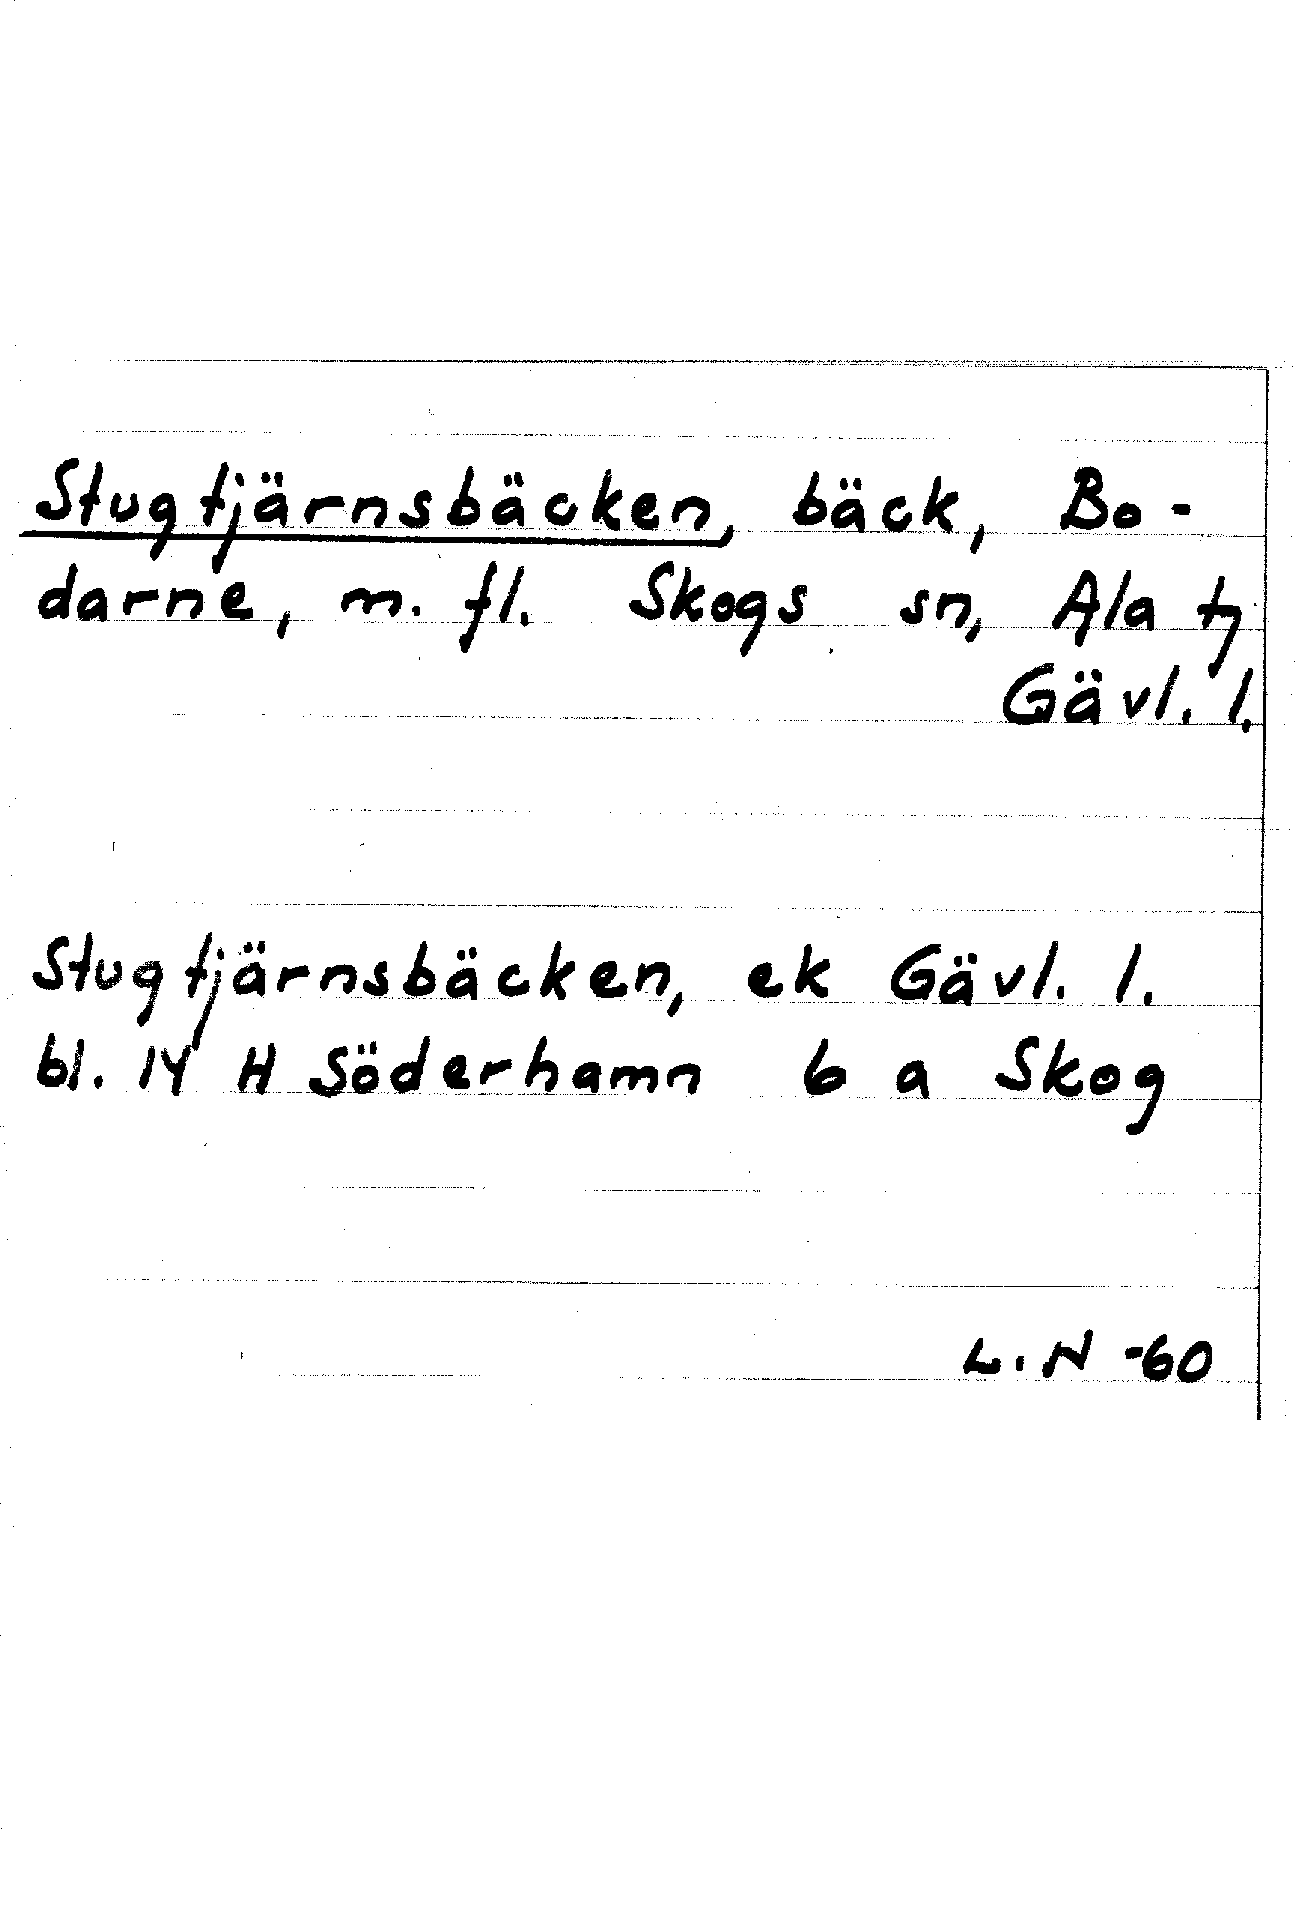 Stugtjärnsbäcken, bäck, Bo-
darne, m. fl. Skogs sn, Ala tg
Gävl. l.
Stugtjärnsbäcken, ek Gävl. l.
bl. 14 H Söderhamn 6 a Skog
L. N -60